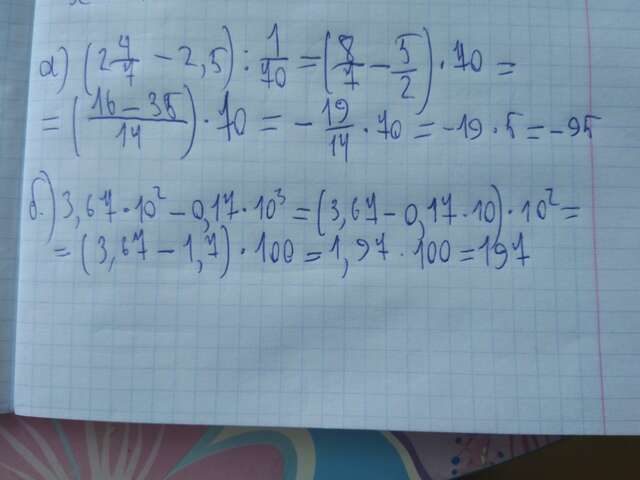 а) (2 4/7 − 2,5) : 1/70 = (8/7 − 5/2) · 70 =
= ((16 − 35)/14) · 70 = − 19/14 · 70 = −19 · 5 = −95
б) 3,67 · 10² − 0,17 · 10³ = (3,67 − 0,17 · 10) · 10² =
= (3,67 − 1,7) · 100 = 1,97 · 100 = 197